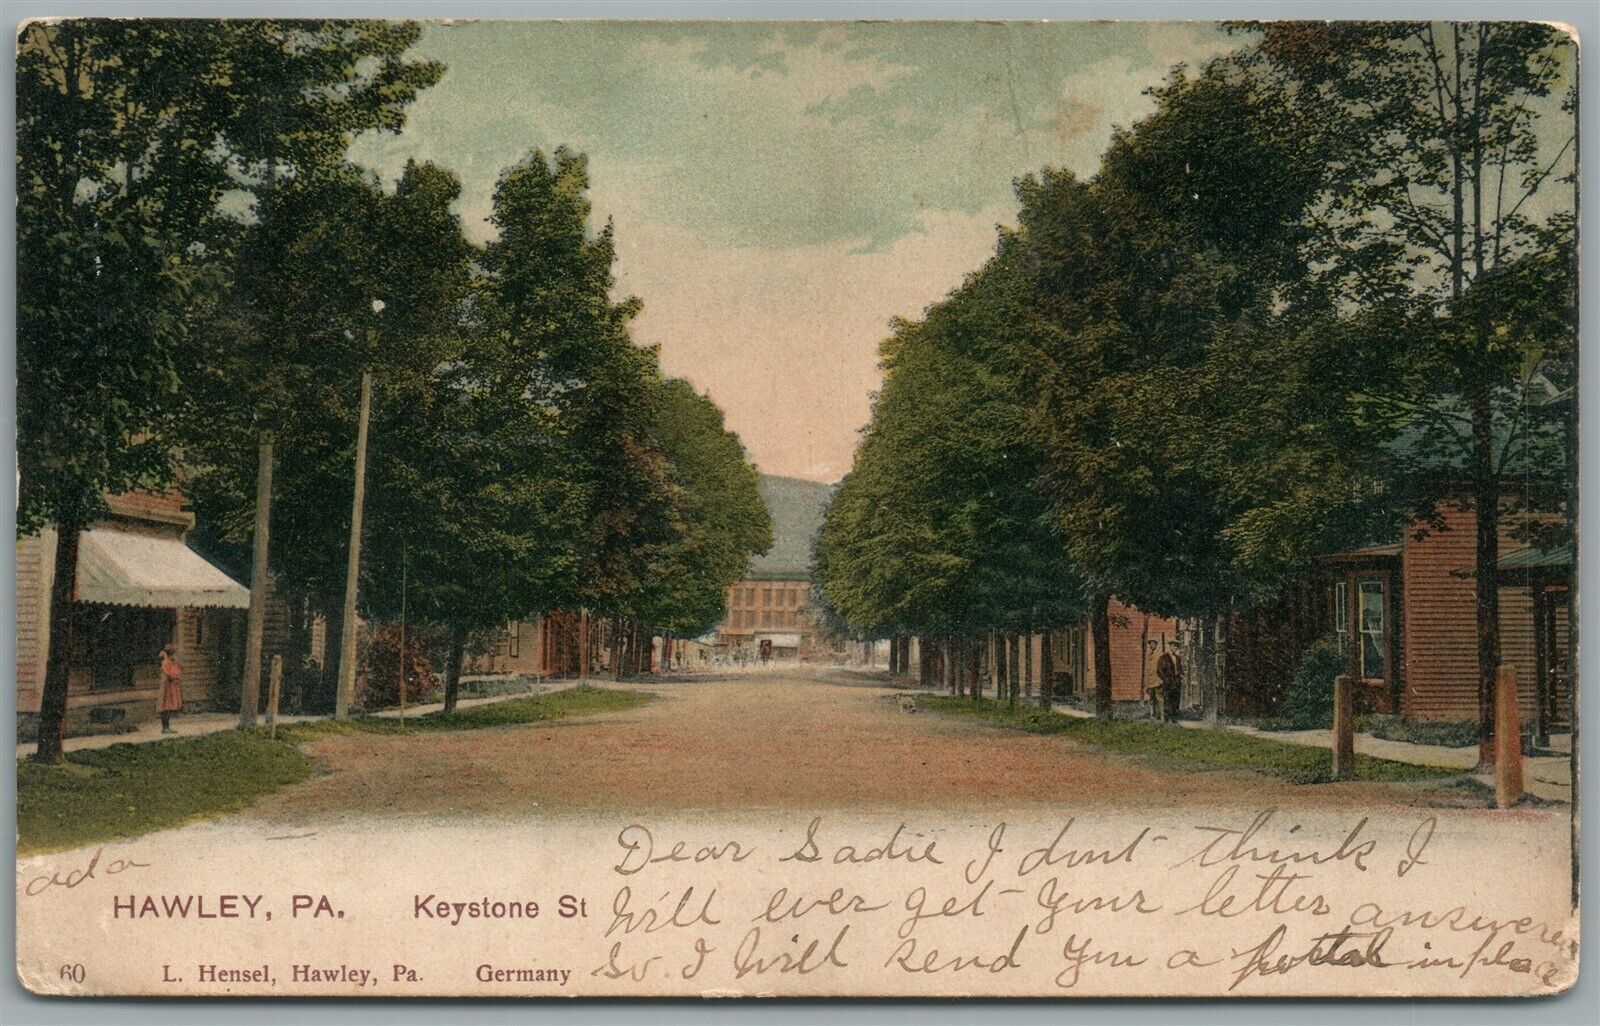 Dear Sadie I dont think I
Will ever get your letter answered
So I Will send you a postal in place
ada
HAWLEY, PA. Keystone St
60 L. Hensel, Hawley, Pa. Germany